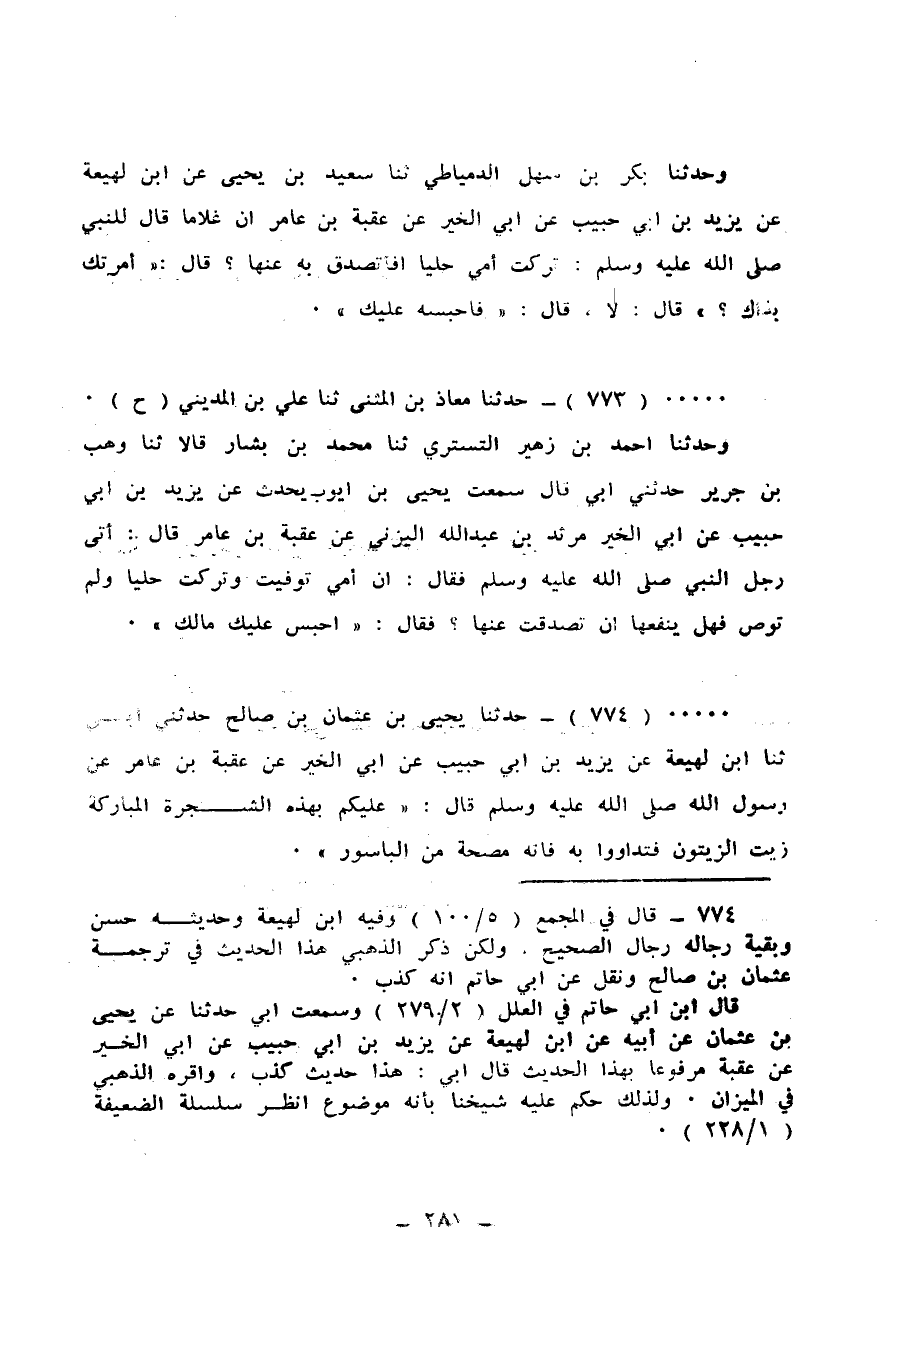 وحدثنا بكر بن سهل الدمياطي ثنا سعيد بن يحيى عن ابن لهيعة
عن يزيد بن ابي حبيب عن ابي الخير عن عقبة بن عامر ان غلاما قال للنبي
صلى الله عليه وسلم : تركت أمي حليا افأتصدق به عنها ؟ قال :« أمرتك
بذاك ؟ » قال : لا ، قال : « فاحبسه عليك » ٠
٠٠٠٠٠ ( ٧٧٣ ) ــ حدثنا معاذ بن المثنى ثنا علي بن المديني ( ح ) ٠
وحدثنا احمد بن زهير التستري ثنا محمد بن بشار قالا ثنا وهب
بن جرير حدثني ابي قال سمعت يحيى بن ايوب يحدث عن يزيد بن ابي
حبيب عن ابي الخير مرثد بن عبدالله اليزني عن عقبة بن عامر قال : أتى
رجل النبي صلى الله عليه وسلم فقال : ان أمي توفيت وتركت حليا ولم
توص فهل ينفعها ان تصدقت عنها ؟ فقال : « احبس عليك مالك » ٠
٠٠٠٠٠ ( ٧٧٤ ) ــ حدثنا يحيى بن عثمان بن صالح حدثني
ثنا ابن لهيعة عن يزيد بن ابي حبيب عن ابي الخير عن عقبة بن عامر عن
رسول الله صلى الله عليه وسلم قال : « عليكم بهذه الشـــــجرة المباركة
زيت الزيتون فتداووا به فانه مصحة من الباسور » ٠
٧٧٤ ــ قال في المجمع ( ١٠٠/٥ ) وفيه ابن لهيعة وحديثـــه حسن
وبقية رجاله رجال الصحيح . ولكن ذكر الذهبي هذا الحديث في ترجمـــة
عثمان بن صالح ونقل عن ابي حاتم انه كذب ٠
قال ابن ابي حاتم في العلل ( ٢٧٩/٢ ) وسمعت ابي حدثنا عن يحيى
بن عثمان عن أبيه عن ابن لهيعة عن يزيد بن ابي حبيب عن ابي الخــير
عن عقبة مرفوعا بهذا الحديث قال ابي : هذا حديث كذب ، واقره الذهبي
في الميزان ٠ ولذلك حكم عليه شيخنا بأنه موضوع انظــر سلسلة الضعيفة
( ٢٢٨/١ ) ٠
ــ ٢٨١ ــ